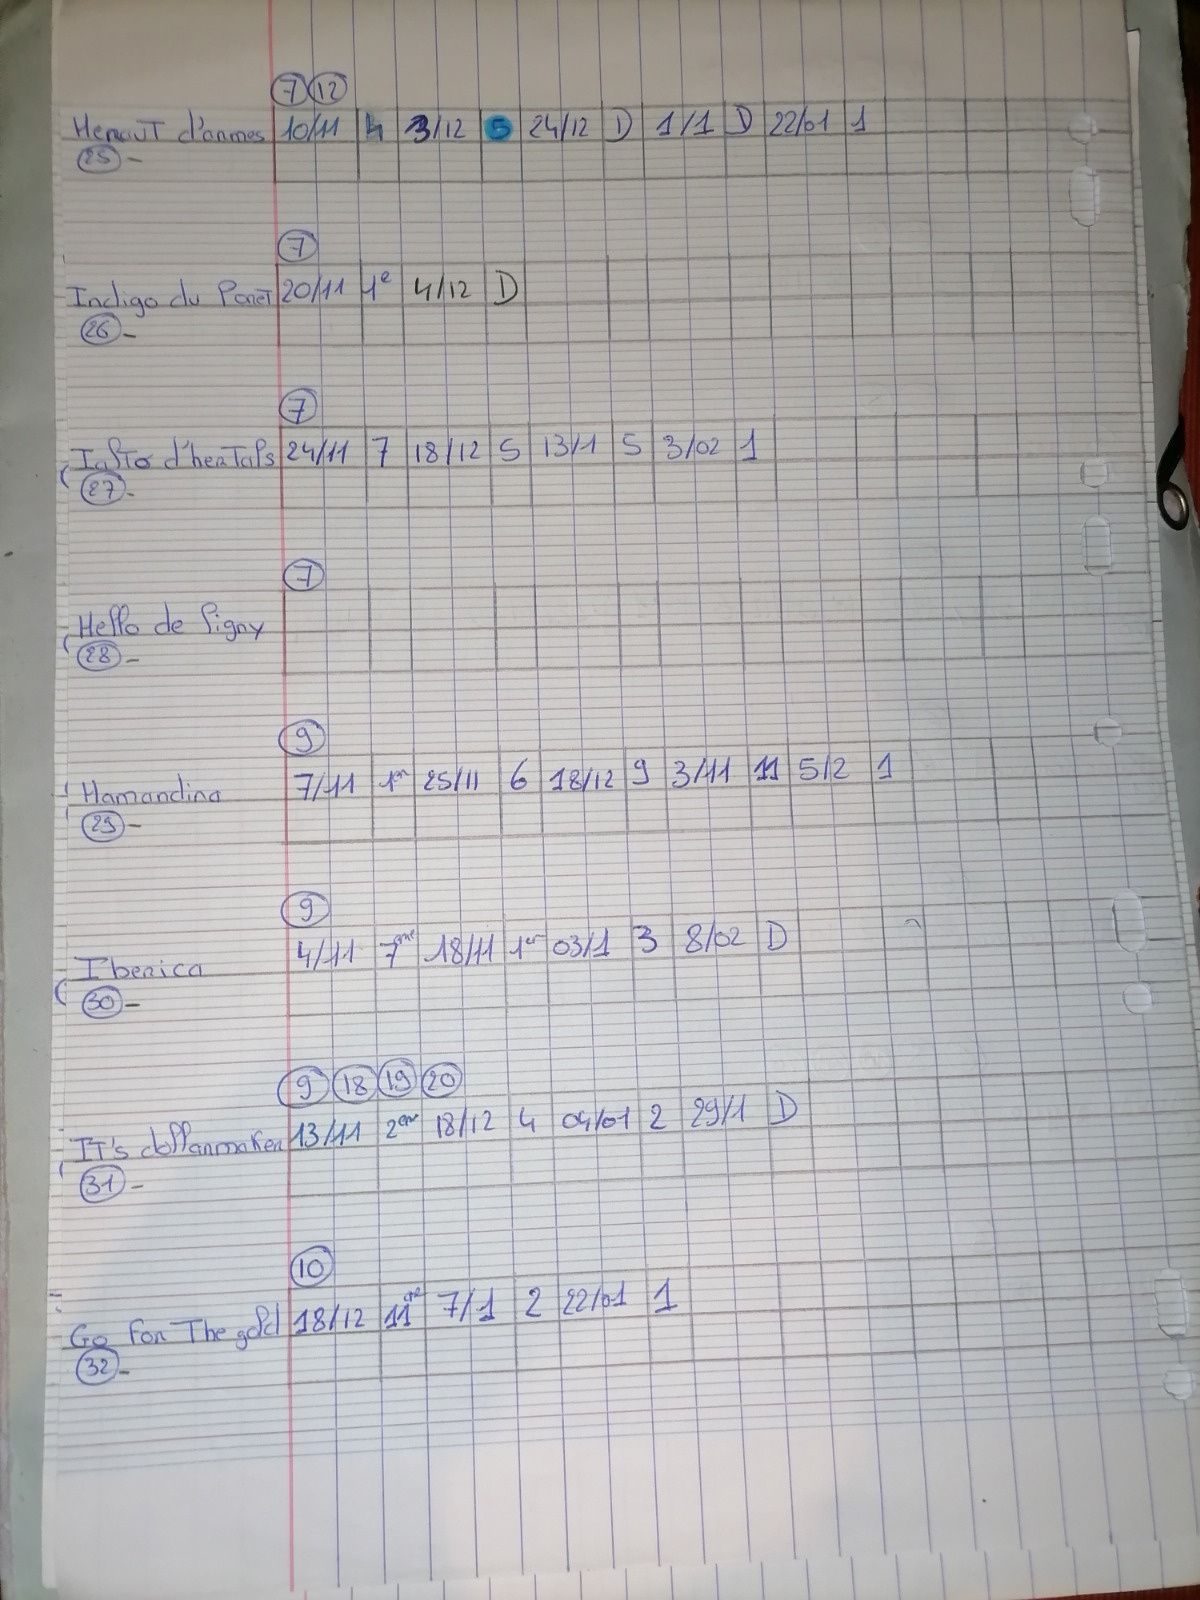 7 12
Heraut d'armes 10/11 4 3/12 5 24/12 D 1/1 D 22/01 1
25 -
7
Indigo du Poret 20/11 1e 4/12 D
26 -
7
24/11 7 18/12 5 13/1 5 3/02 1
27 -
7
Hello de Signy
28 -
9
Hamandina 7/11 1er 25/11 6 18/12 9 3/11 11 5/2 1
29 -
9
Iberica 4/11 7eme 18/11 1er 03/1 3 8/02 D
30 -
9 18 19 20
IT's dollarmaker 13/11 2eme 18/12 4 04/01 2 29/1 D
31 -
10
Go For The gold 18/12 11e 7/1 2 22/01 1
32 -